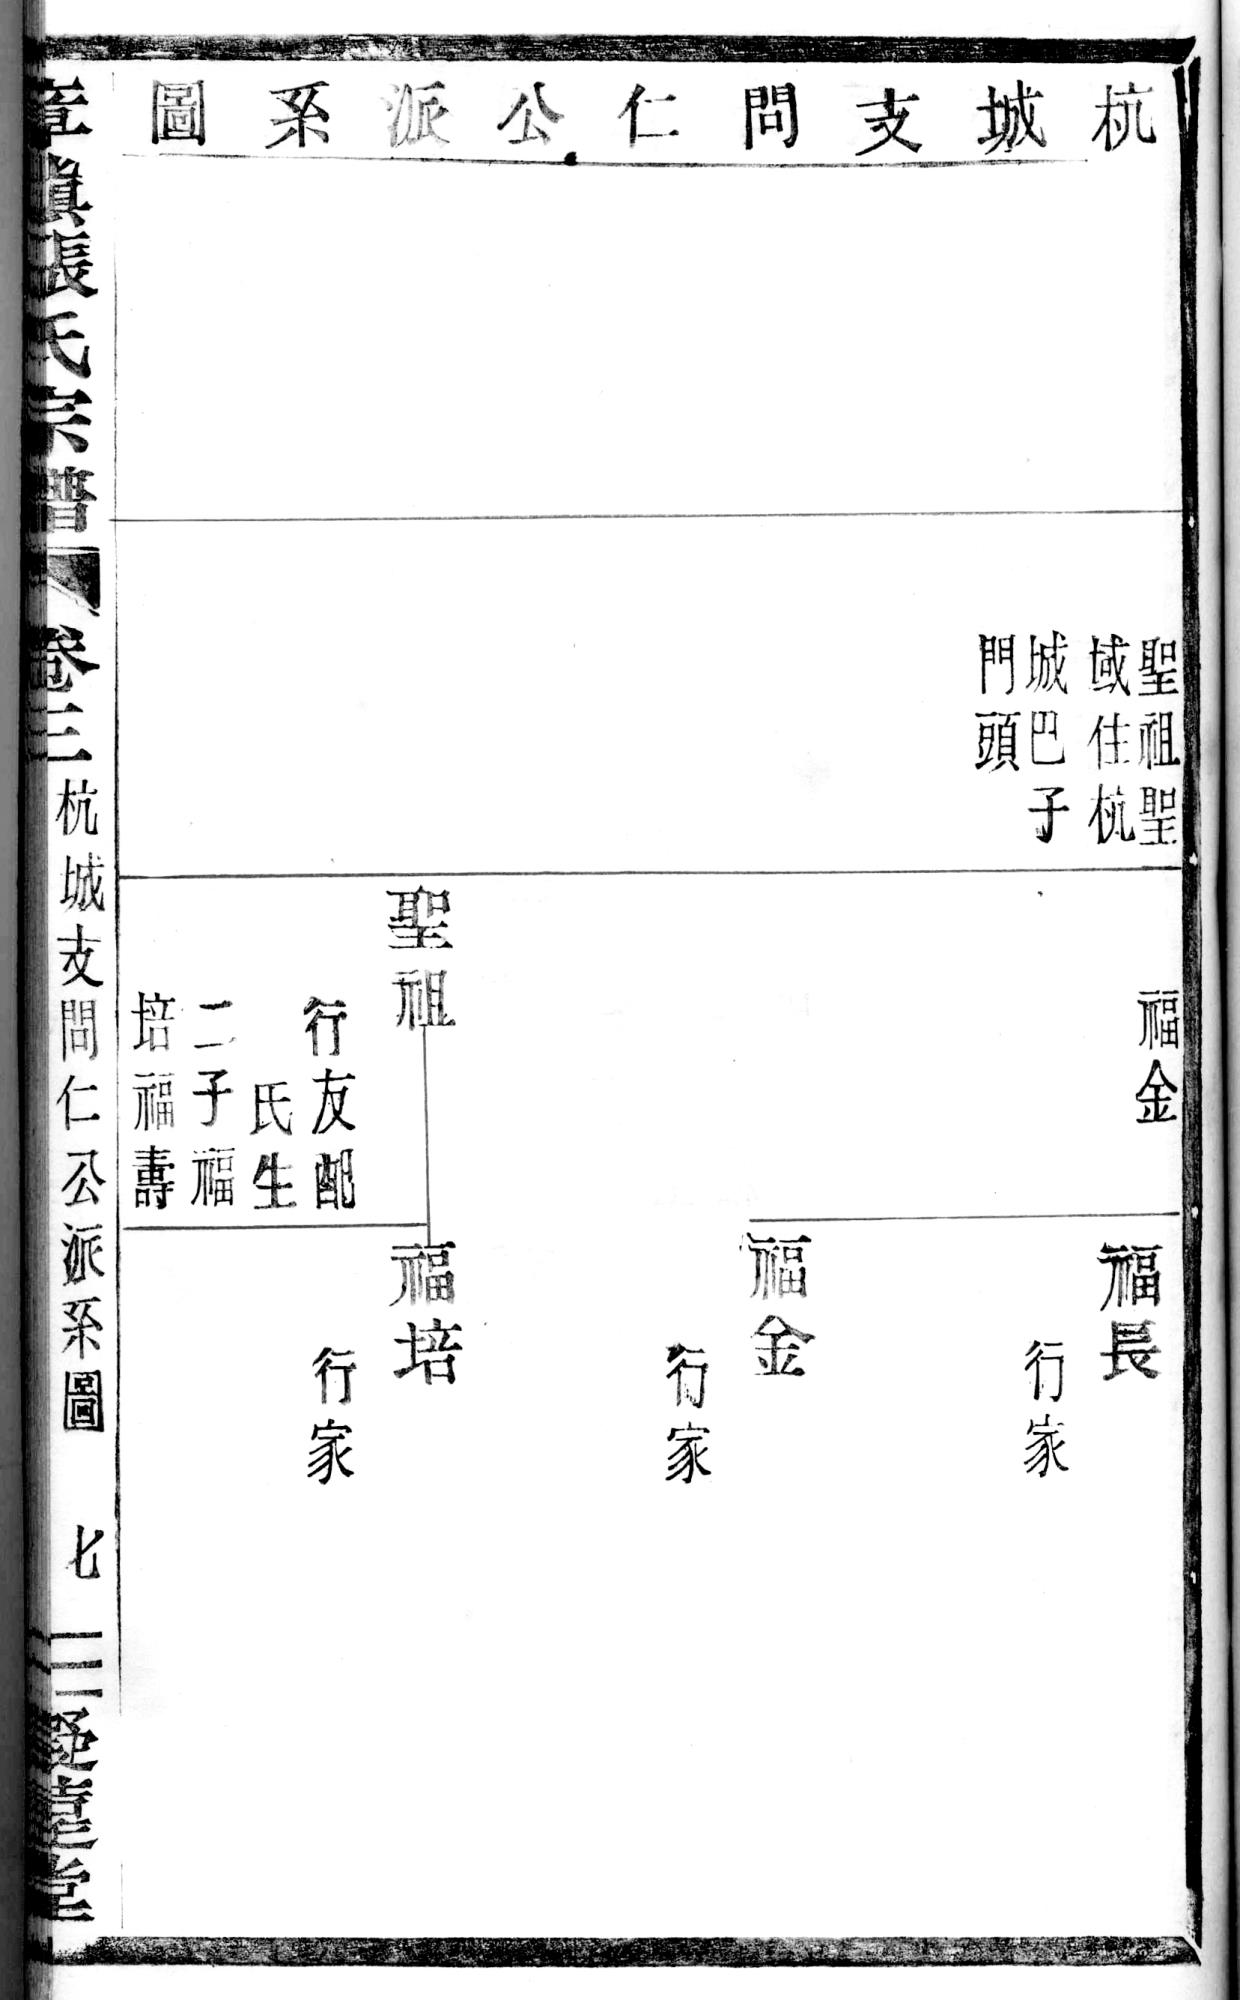 杭城支問仁公派系圖
聖祖聖
域住杭
城巴子
門頭
福金
聖祖
行友配
氏生
二子福
培福壽
福長
行家
福金
行家
福培
行家
張氏宗譜
卷三
杭城支問仁公派系圖
七
堂